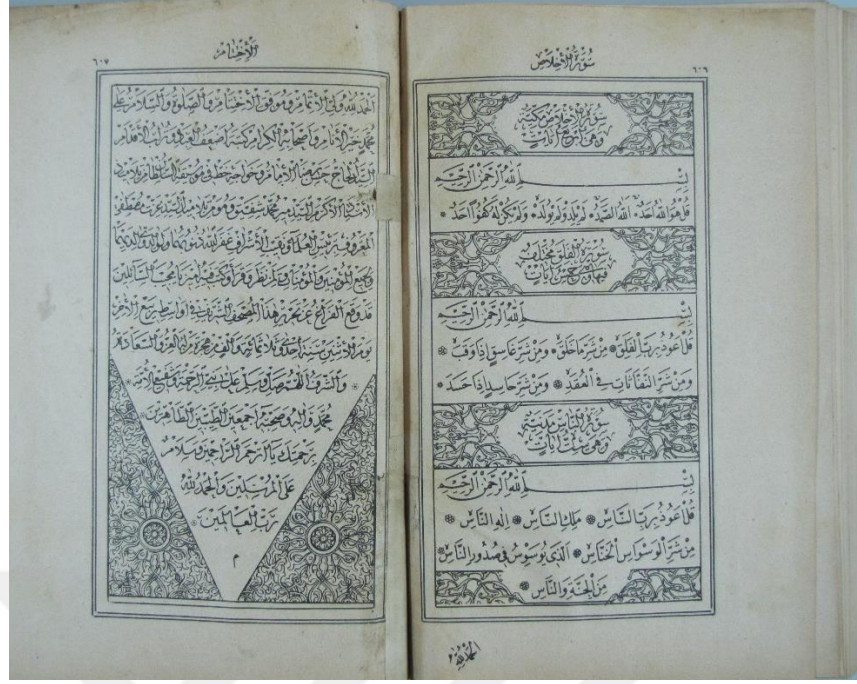 ٦٠٦
سُورَةُ الْاِخْلَاصِ
سُورَةُ الْاِخْلَاصِ مَكِّيَّةٌ
وَهِيَ اَرْبَعُ اٰيَاتٍ
بِسْمِ اللّٰهِ الرَّحْمٰنِ الرَّحِيمِ
قُلْ هُوَ اللّٰهُ اَحَدٌ اَللّٰهُ الصَّمَدُ لَمْ يَلِدْ وَلَمْ يُولَدْ وَلَمْ يَكُنْ لَهُ كُفُوًا اَحَدٌ
سُورَةُ الْفَلَقِ مُخْتَلَفٌ
فِيهَا وَهِيَ خَمْسُ اٰيَاتٍ
بِسْمِ اللّٰهِ الرَّحْمٰنِ الرَّحِيمِ
قُلْ اَعُوذُ بِرَبِّ الْفَلَقِ مِنْ شَرِّ مَا خَلَقَ وَمِنْ شَرِّ غَاسِقٍ اِذَا وَقَبَ
وَمِنْ شَرِّ النَّفَّاثَاتِ فِي الْعُقَدِ وَمِنْ شَرِّ حَاسِدٍ اِذَا حَسَدَ
سُورَةُ النَّاسِ مَدَنِيَّةٌ
وَهِيَ سِتُّ اٰيَاتٍ
بِسْمِ اللّٰهِ الرَّحْمٰنِ الرَّحِيمِ
قُلْ اَعُوذُ بِرَبِّ النَّاسِ مَلِكِ النَّاسِ اِلٰهِ النَّاسِ
مِنْ شَرِّ الْوَسْوَاسِ الْخَنَّاسِ اَلَّذِي يُوَسْوِسُ فِي صُدُورِ النَّاسِ
مِنَ الْجِنَّةِ وَالنَّاسِ
الحمد لله
٦٠٧
الْاِخْتِتَامُ
اَلْحَمْدُ لِلّٰهِ وَلِيِّ الْاِتْمَامِ وَمُوَفِّقِ الْاِخْتِتَامِ وَالصَّلٰوةُ وَالسَّلَامُ عَلٰى
مُحَمَّدٍ خَيْرِ الْاَنَامِ وَاَصْحَابِهِ الْكِرَامِ كَتَبَهُ اَضْعَفُ الْعِبَادِ وَتُرَابُ الْاَقْدَامِ
السَّيِّدُ الْحَاجُّ حَسَنْ رِضَا الْاِمَامُ وَخَوَاجَهُ خَطّ فِي
مُحَمَّدْ شَفِيقْ وَهُوَ مِنْ تَلَامِيذِ السَّيِّدِ عِزَّتْ مُصْطَفٰى
غَفَرَ اللّٰهُ ذُنُوبَهُمَا
وَلِجَمِيعِ الْمُؤْمِنِينَ وَالْمُؤْمِنَاتِ وَلِمَنْ نَظَرَ وَقَرَاَ
قَدْ وَقَعَ الْفَرَاغُ عَنْ تَحْرِيرِ هٰذَا الْمُصْحَفِ الشَّرِيفِ فِي اَوَاسِطِ رَبِيعِ الْاٰخِرِ
يَوْمَ الْاِثْنَيْنِ سَنَةِ اِحْدٰى وَثَلَاثِمِائَةٍ وَاَلْفٍ مِنْ هِجْرَةِ مَنْ لَهُ الْعِزُّ وَالسَّعَادَةُ
وَالشَّرَفُ اَللّٰهُمَّ صَلِّ وَسَلِّمْ عَلٰى نَبِيِّ الرَّحْمَةِ وَشَفِيعِ الْاُمَّةِ
مُحَمَّدٍ وَاٰلِهِ وَصَحْبِهِ اَجْمَعِينَ الطَّيِّبِينَ الطَّاهِرِينَ
بِرَحْمَتِكَ يَا اَرْحَمَ الرَّاحِمِينَ وَسَلَامٌ
عَلَى الْمُرْسَلِينَ وَالْحَمْدُ لِلّٰهِ
رَبِّ الْعَالَمِينَ
م